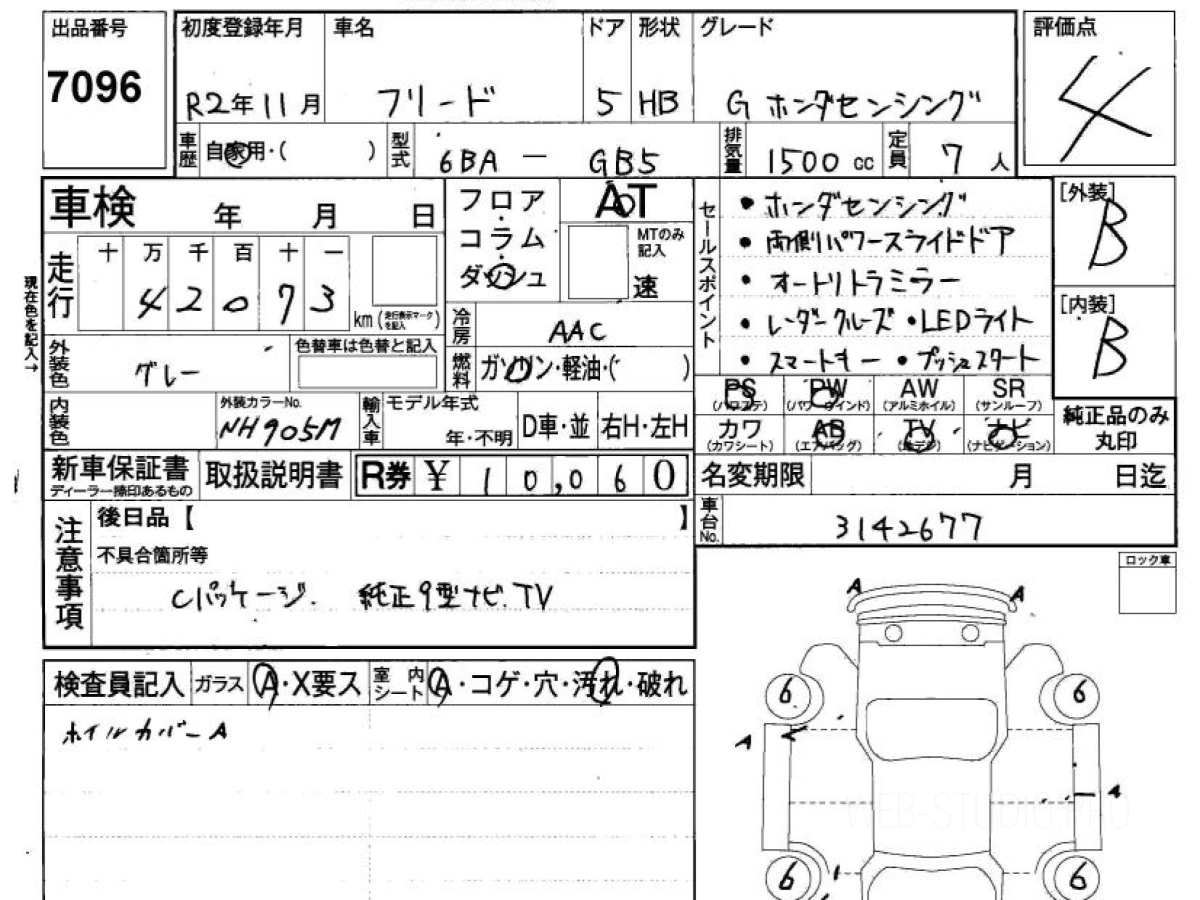 出品番号 初度登録年月 車名 ドア 形状 グレード 評価点
7096 R2年11月 フリード 5 HB G ホンダセンシング 4
車歴 自家用・( ) 型式 6BA - GB5 排気量 1500 cc 定員 7 人
車検 年 月 日
フロア・コラム・ダッシュ AT
MTのみ記入 速
セールスポイント
・ホンダセンシング
・両側パワースライドドア
・オートリトラミラー
・レーダークルーズ ・LEDライト
・スマートキー ・プッシュスタート
[外装] B
[内装] B
現在色を記入→
走行 十 万 千 百 十 一
4 2 0 7 3 km (走行表示マークを記入)
冷房 AAC
外装色 グレー 色替車は色替と記入
燃料 ガソリン・軽油・( )
PS (パワステ) PW (パワーウインド) AW (アルミホイル) SR (サンルーフ)
カワ (カワシート) AB (エアバッグ) TV (地デジ) ナビ (ナビゲーション)
純正品のみ丸印
内装色 外装カラーNo. NH905M 輸入車 モデル年式 年・不明 D車・並 右H・左H
新車保証書 ディーラー捺印あるもの 取扱説明書 R券 ¥ 10,060
名変期限 月 日迄
車台No. 3142677
注意事項
後日品【 】
不具合箇所等
Cパッケージ. 純正9型ナビ.TV
ロック車
検査員記入 ガラス A・X要ス 室内シート A・コゲ・穴・汚れ・破れ
ホイルカバーA
A A
6 6
A A
6 6
WEB-STUDIO.PRO